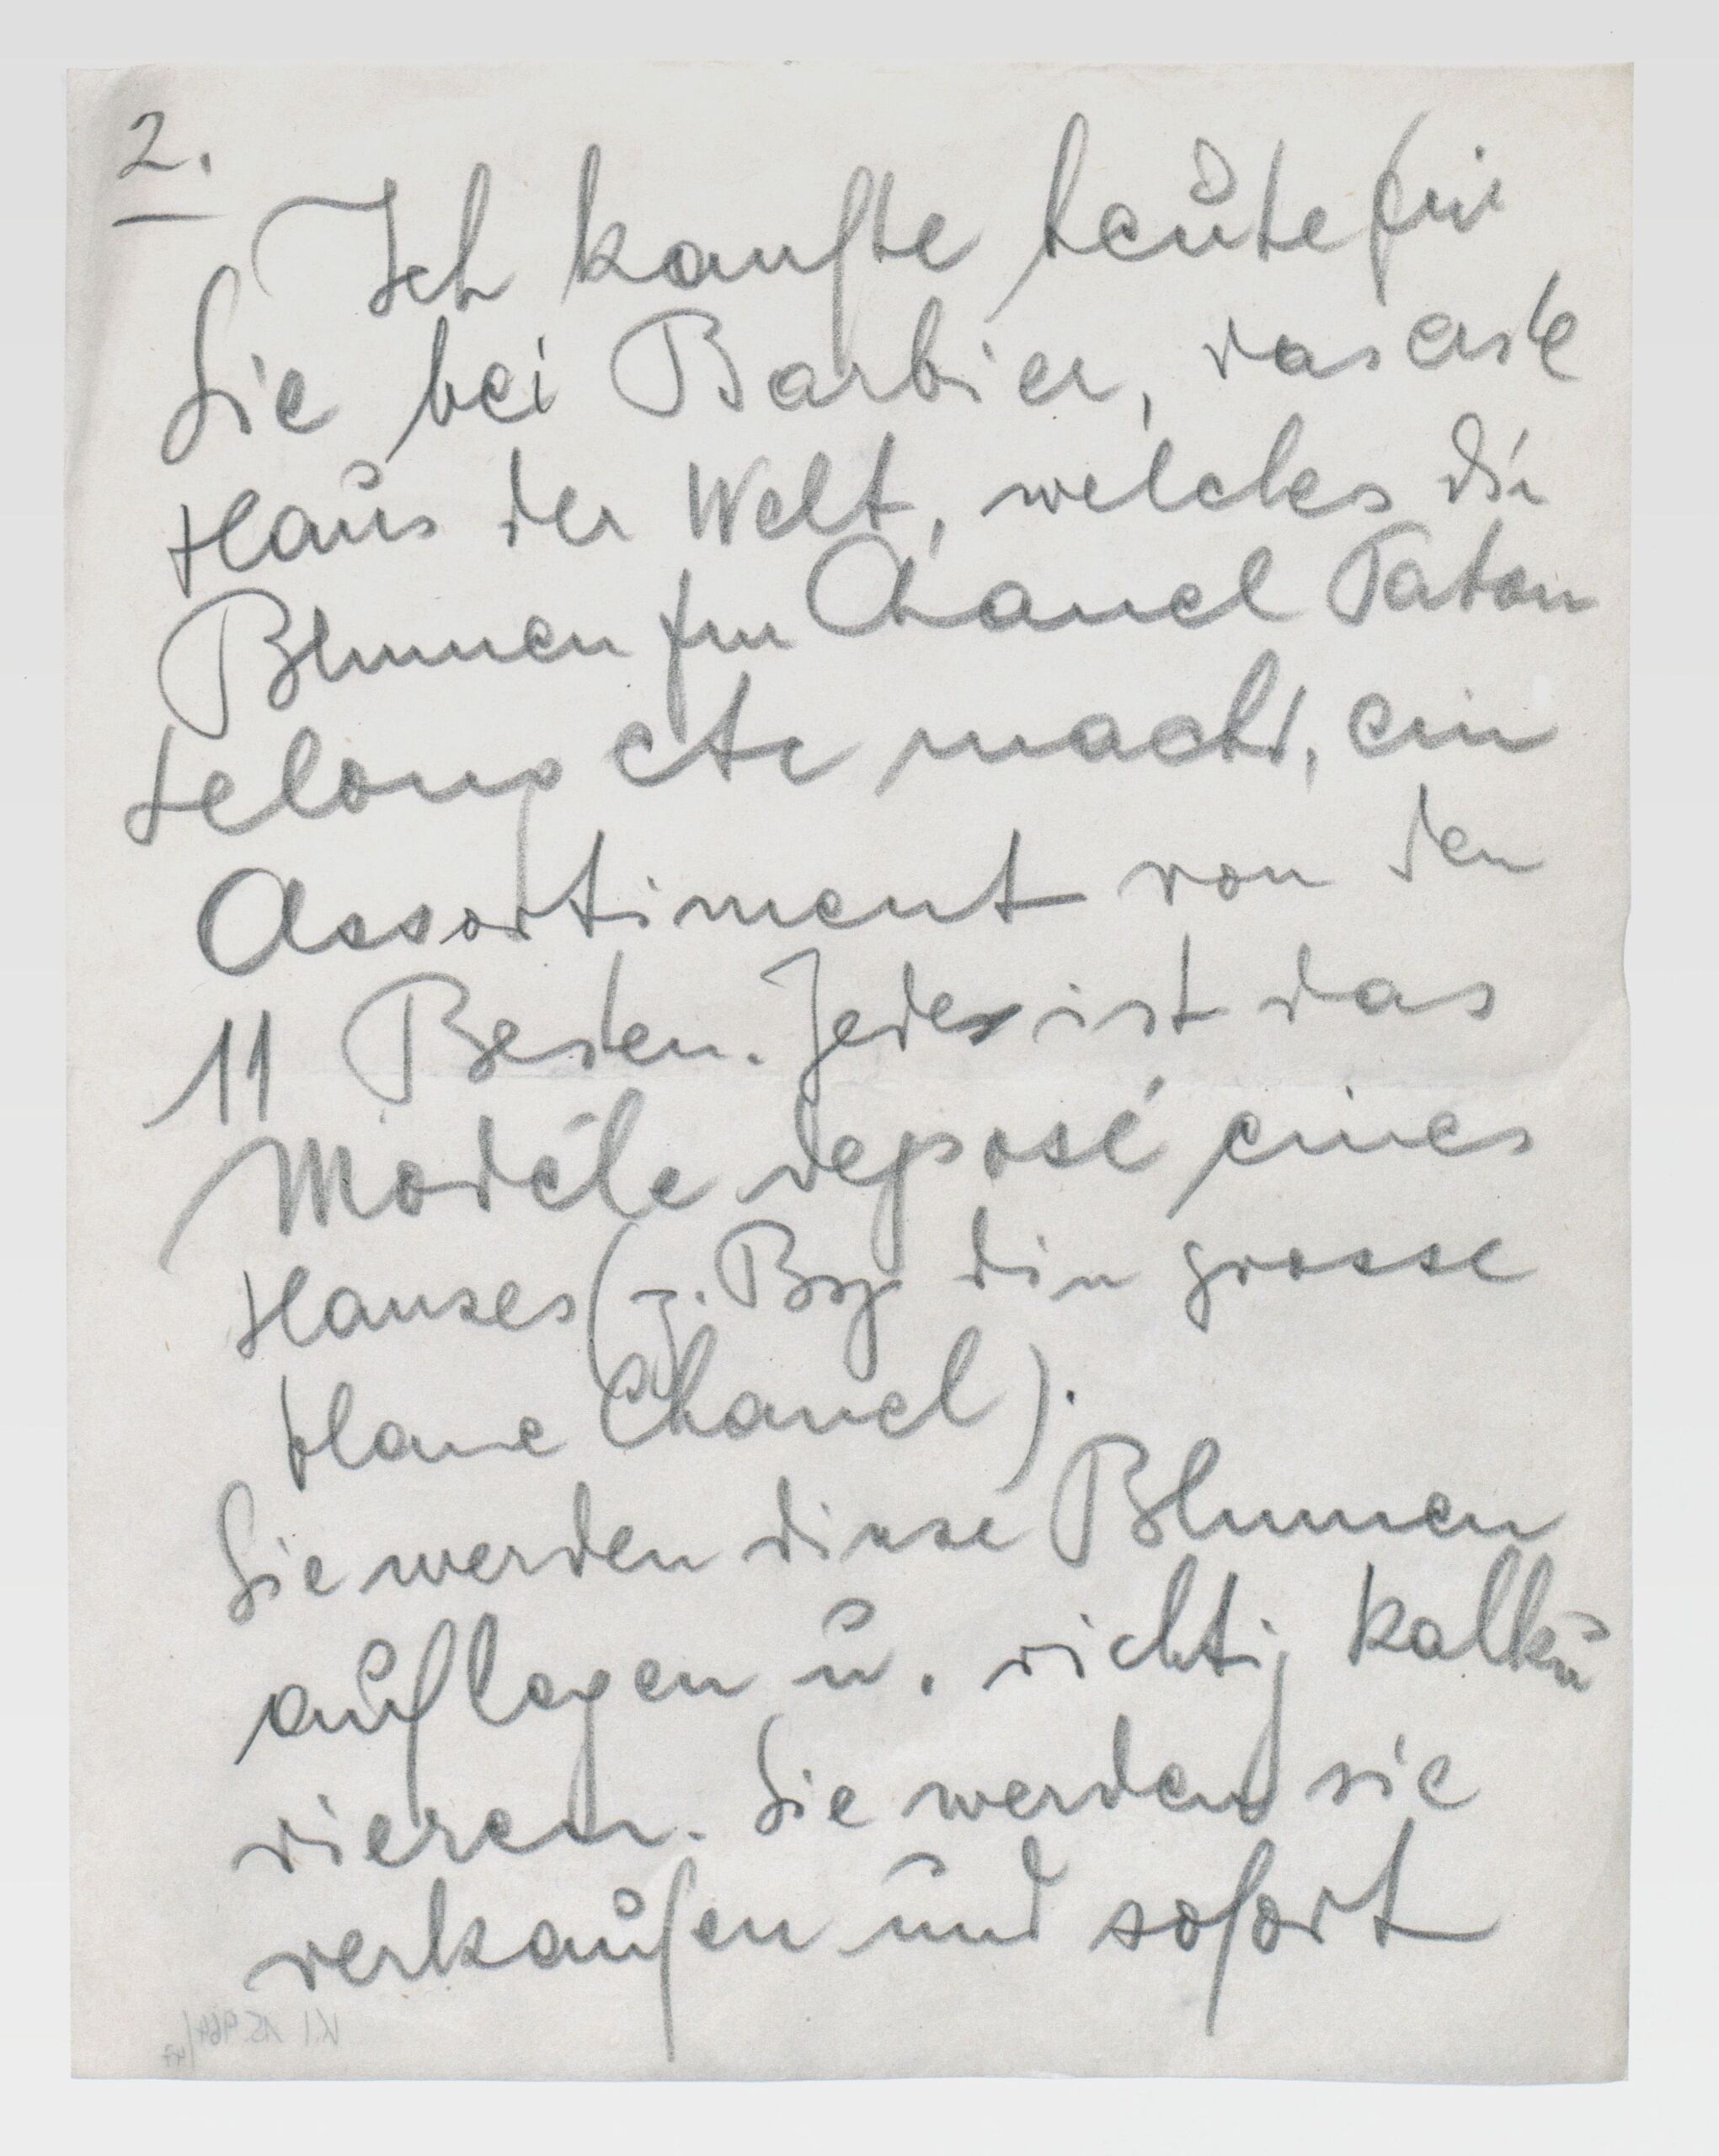 2.
Ich kaufte heute für
Sie bei Barbier, das erste
Haus der Welt, welches die
Blumen für Chanel Patou
Lelong etc macht, ein
Assortiment von den
11 Besten. Jedes ist das
Modéle deposé eines
Hauses (z. Bsp die grosse
blaue Chanel).
Sie werden diese Blumen
auflegen u. richtig kalku
lieren. Sie werden sie
verkaufen und sofort